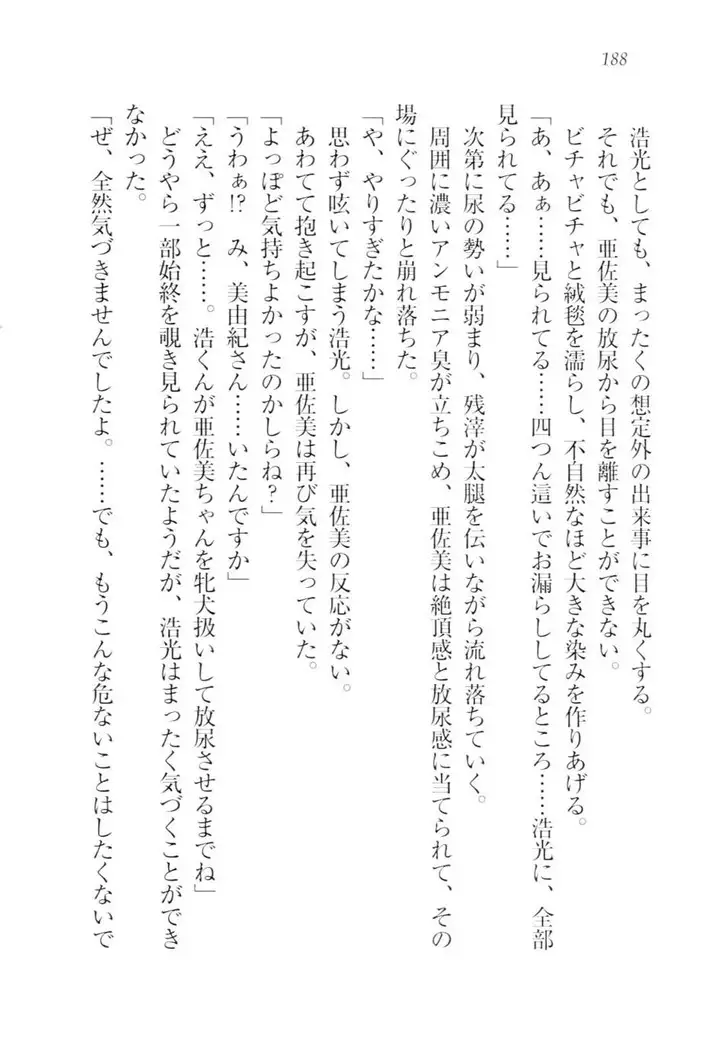 188
浩光としても、まったくの想定外の出来事に目を丸くする。
それでも、亜佐美の放尿から目を離すことができない。
ビチャビチャと絨毯を濡らし、不自然なほど大きな染みを作りあげる。
「あ、あぁ……見られてる……四つん這いでお漏らししてるところ……浩光に、全部
見られてる……」
次第に尿の勢いが弱まり、残滓が太腿を伝いながら流れ落ちていく。
周囲に濃いアンモニア臭が立ちこめ、亜佐美は絶頂感と放尿感に当てられて、その
場にぐったりと崩れ落ちた。
「や、やりすぎたかな……」
思わず呟いてしまう浩光。しかし、亜佐美の反応がない。
あわてて抱き起こすが、亜佐美は再び気を失っていた。
「よっぽど気持ちよかったのかしらね?」
「うわぁ!? み、美由紀さん……いたんですか」
「ええ、ずっと……。浩くんが亜佐美ちゃんを牝犬扱いして放尿させるまでね」
どうやら一部始終を覗き見られていたようだが、浩光はまったく気づくことができ
なかった。
「ぜ、全然気づきませんでしたよ。……でも、もうこんな危ないことはしたくないで